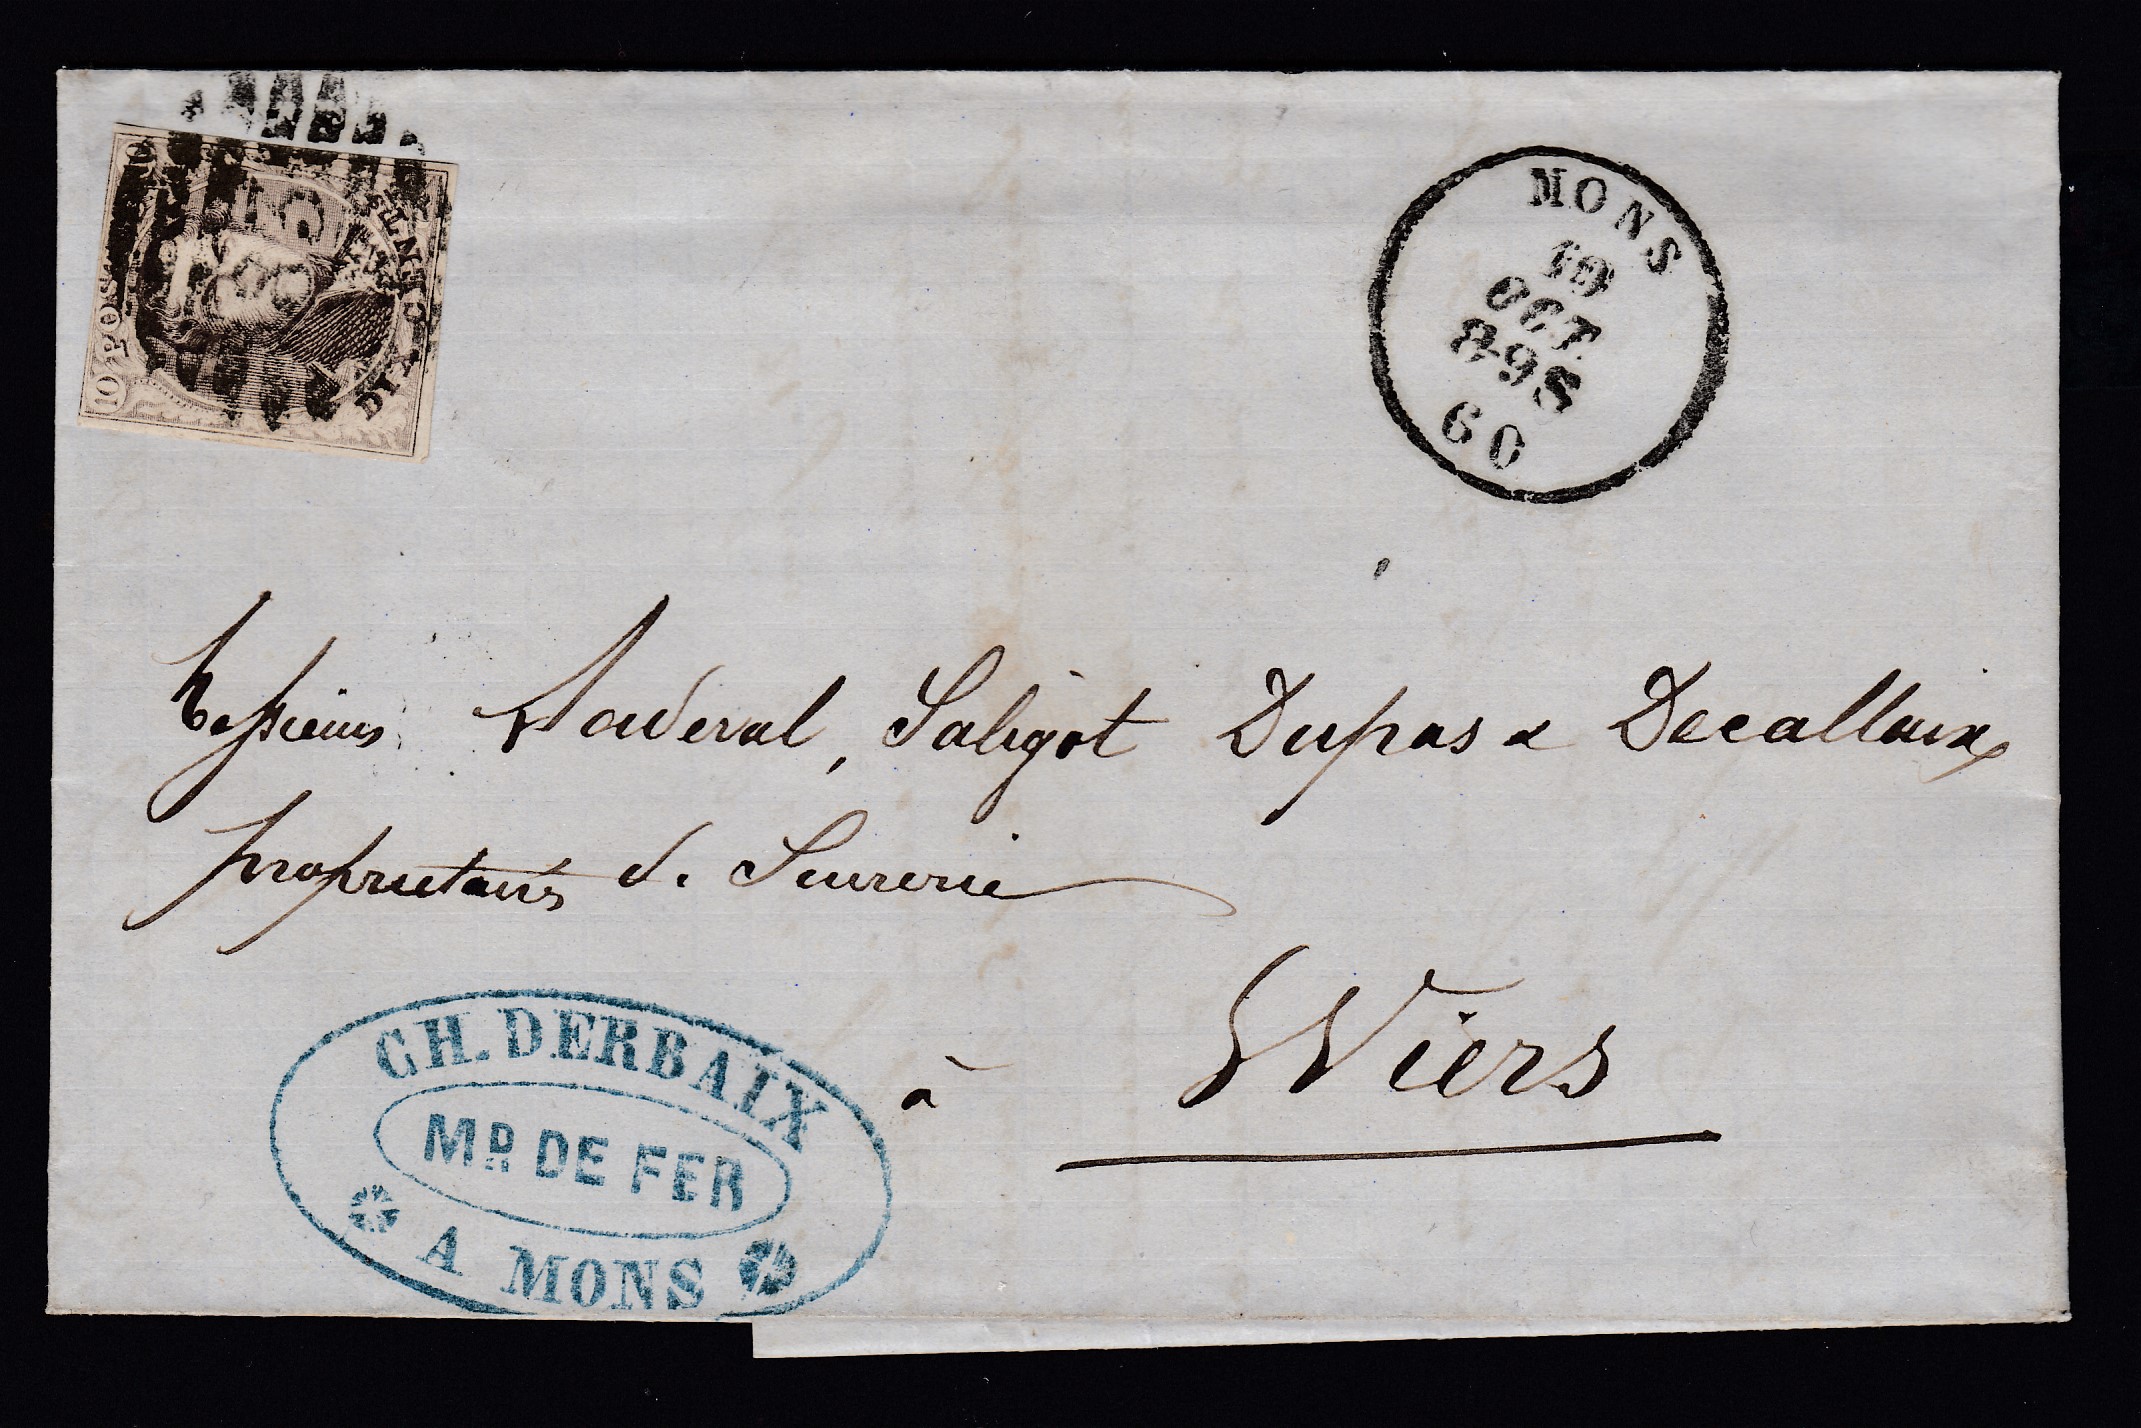 10 POSTES
DIX CENTIMES
MONS
19
OCT.
8-9S
60
Messieurs Vauderval, Saligot Dupas & Decallaix
propriétaires de Sucrerie
à Wiers
CH. DERBAIX
MD. DE FER
A MONS